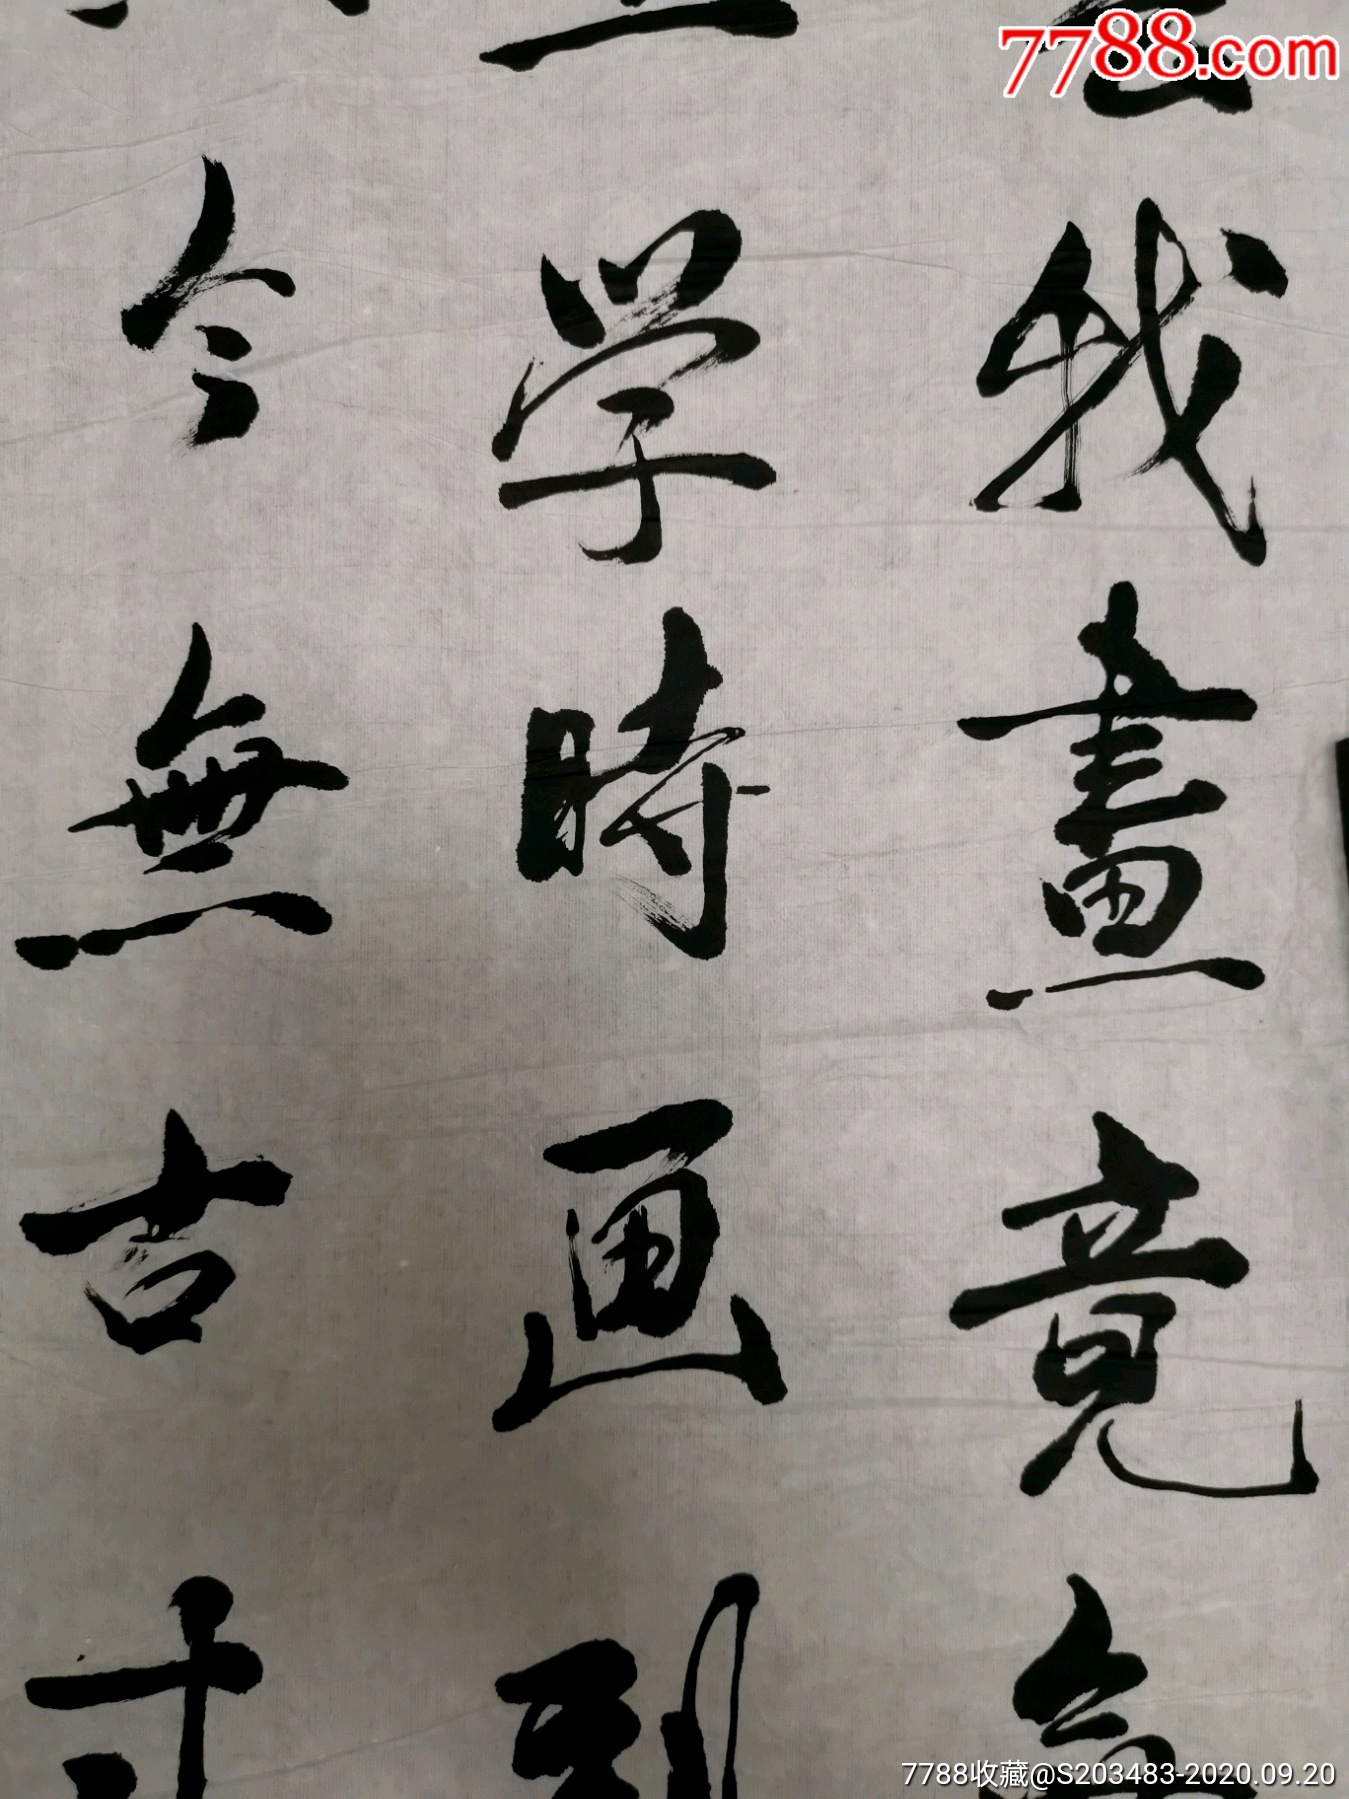 7788.com
我畫竟
学時画到
今無古寸
7788收藏@S203483-2020.09.20